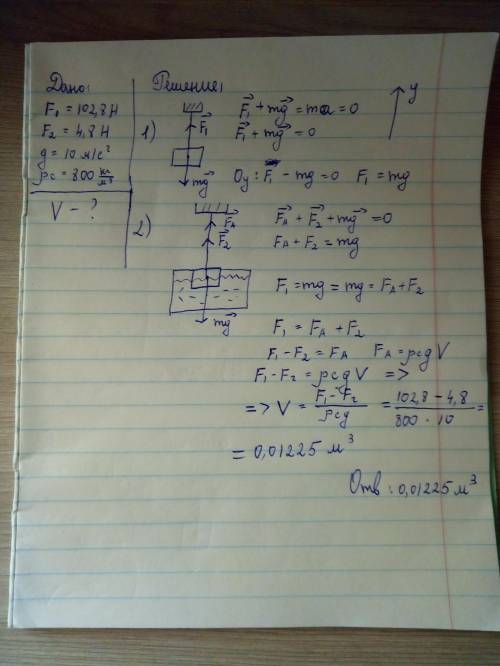 Дано:
F₁ = 102,8 Н
F₂ = 4,8 Н
g = 10 м/с²
ρс = 800 кг/м³
V - ?
Решение:
1)
F₁
mg
F₁ + mg = ma = 0
F₁ + mg = 0
Oy: F₁ - mg = 0 F₁ = mg
y
2)
FA
F₂
mg
FA + F₂ + mg = 0
FA + F₂ = mg
F₁ = mg = mg = FA + F₂
F₁ = FA + F₂
F₁ - F₂ = FA FA = ρсgV
F₁ - F₂ = ρсgV =>
=> V = F₁ - F₂ / ρсg = 102,8 - 4,8 / 800 · 10 =
= 0,01225 м³
Отв: 0,01225 м³